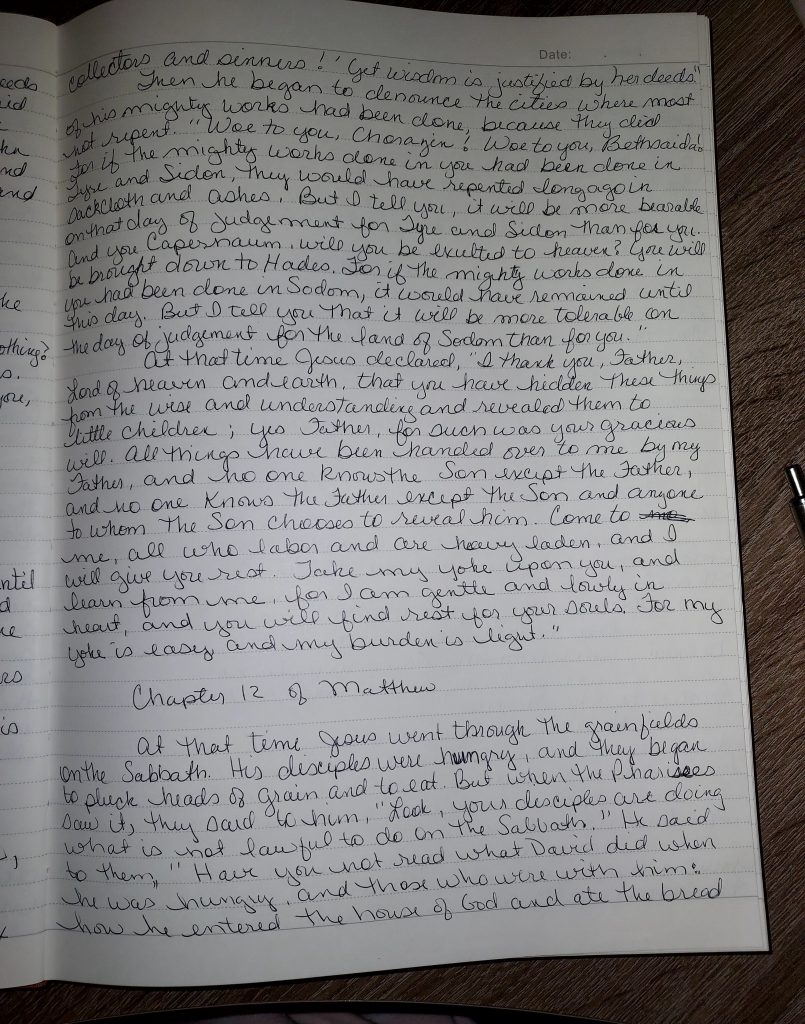 Date:
collectors and sinners!' Yet wisdom is justified by her deeds."
Then he began to denounce the cities where most
of his mighty works had been done, because they did
not repent. "Woe to you, Chorazin! Woe to you, Bethsaida!
for if the mighty works done in you had been done in
Tyre and Sidon, they would have repented long ago in
sackcloth and ashes. But I tell you, it will be more bearable
on that day of judgement for Tyre and Sidon than for you.
And you Capernaum, will you be exulted to heaven? You will
be brought down to Hades. For if the mighty works done in
you had been done in Sodom, it would have remained until
this day. But I tell you that it will be more tolerable on
the day of judgement for the land of Sodom than for you."
At that time Jesus declared, "I thank you, Father,
Lord of heaven and earth, that you have hidden these things
from the wise and understanding and revealed them to
little children; yes Father, for such was your gracious
will. All things have been handed over to me by my
Father, and no one knows the Son except the Father,
and no one knows the Father except the Son and anyone
to whom the Son chooses to reveal him. Come to
me, all who labor and are heavy laden, and I
will give you rest. Take my yoke upon you, and
learn from me, for I am gentle and lowly in
heart, and you will find rest for your souls. For my
yoke is easy and my burden is light."
Chapter 12 of Matthew
At that time Jesus went through the grainfields
on the Sabbath. His disciples were hungry, and they began
to pluck heads of grain and to eat. But when the Pharisees
saw it, they said to him, "Look, your disciples are doing
what is not lawful to do on the Sabbath." He said
to them, "Have you not read what David did when
he was hungry, and those who were with him:
how he entered the house of God and ate the bread